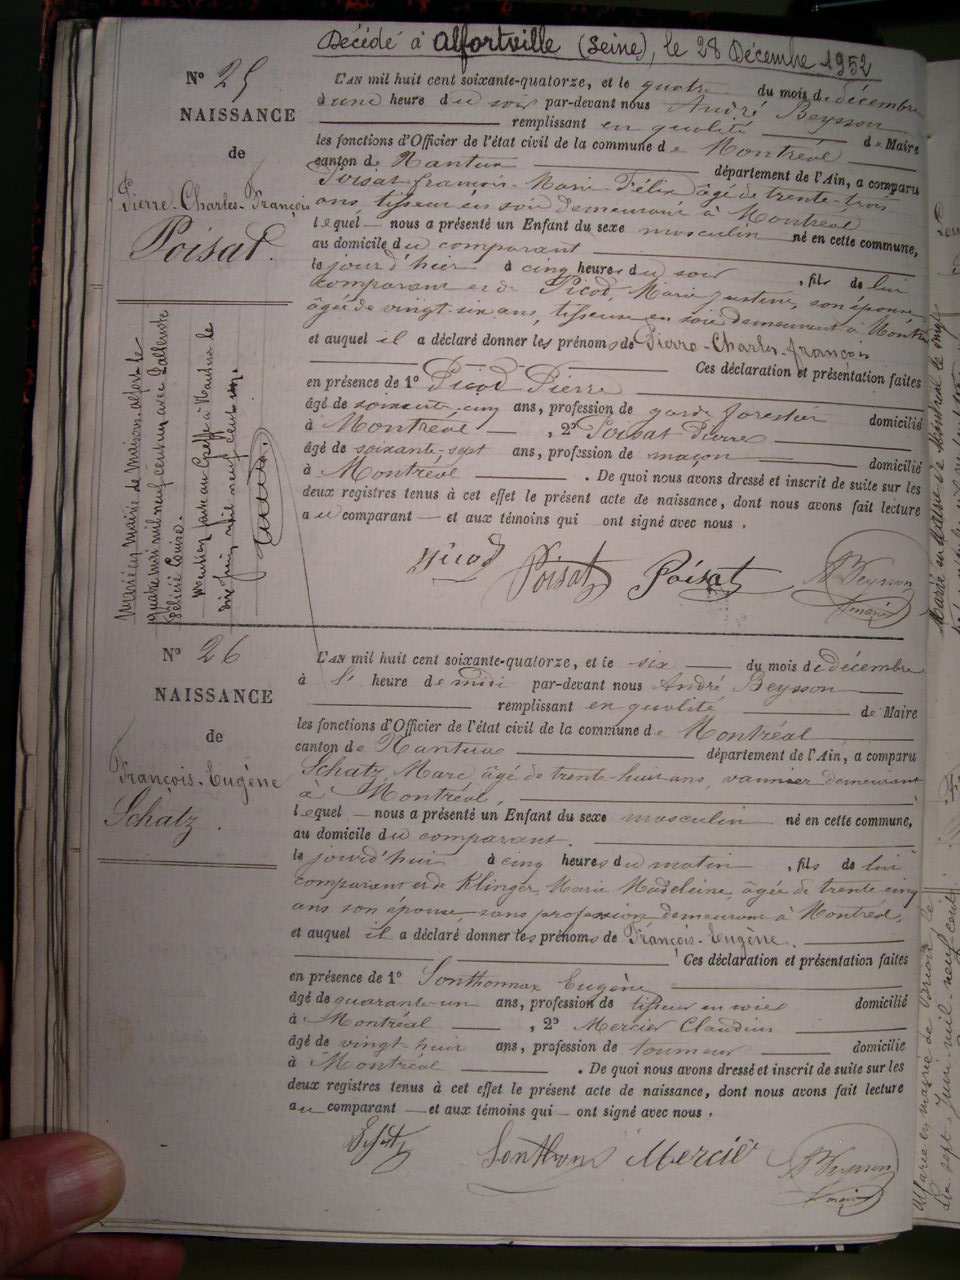 Décédé à Alfortville (Seine), le 28 Décembre 1952
N° 25
NAISSANCE
de
Pierre-Charles-François
Poisat.
L'AN mil huit cent soixante-quatorze, et le quatre du mois de décembre
à une heure du soir par-devant nous André Beysson
remplissant en qualité de Maire
les fonctions d'Officier de l'état civil de la commune de Montréal
canton de Nantua département de l'Ain, a comparu
Poisat françois-Marie Félix âgé de trente-trois
ans, tisseur en soie demeurant à Montréal
lequel nous a présenté un Enfant du sexe masculin né en cette commune,
au domicile du comparant
le jour d'hier à cinq heures du soir, fils de lui
comparant et de Picod, Marie Justine, son épouse
âgée de vingt-six ans, tisseuse en soie demeurant à Montréal
et auquel il a déclaré donner les prénoms de Pierre-Charles-françois
Ces déclaration et présentation faites
en présence de 1° Picod Pierre
âgé de soixante-cinq ans, profession de garde forestier domicilié
à Montréal, 2° Poisat Pierre
âgé de soixante-sept ans, profession de maçon domicilié
à Montréal. De quoi nous avons dressé et inscrit de suite sur les
deux registres tenus à cet effet le présent acte de naissance, dont nous avons fait lecture
au comparant et aux témoins qui ont signé avec nous.
Picod Poisat Poisat A Beysson
maire
Marié en mairie de Maisons-alfort le
quatre mai mil neuf cent un avec
Félicie Louise.
Mention faite au Greffe à Nantua le
dix Juin mil neuf cent un.
N° 26
NAISSANCE
de
François-Eugène
Schatz.
L'AN mil huit cent soixante-quatorze, et le six du mois de décembre
à l' heure de midi par-devant nous André Beysson
remplissant en qualité de Maire
les fonctions d'Officier de l'état civil de la commune de Montréal
canton de Nantua département de l'Ain, a comparu
Schatz, Marc âgé de trente-huit ans, vannier demeurant
à Montréal,
lequel nous a présenté un Enfant du sexe masculin né en cette commune,
au domicile du comparant.
le jourd'hui à cinq heures du matin, fils de lui
comparant et de Klinger, Marie Madeleine, âgée de trente cinq
ans son épouse sans profession, demeurant à Montréal,
et auquel il a déclaré donner les prénoms de François-Eugène.
Ces déclaration et présentation faites
en présence de 1° Sonthonnax Eugène
âgé de quarante-un ans, profession de tisseur en soie domicilié
à Montréal, 2° Mercier Claudius
âgé de vingt-huit ans, profession de tourneur domicilié
à Montréal. De quoi nous avons dressé et inscrit de suite sur les
deux registres tenus à cet effet le présent acte de naissance, dont nous avons fait lecture
au comparant et aux témoins qui ont signé avec nous.
Mercié A Beysson
maire